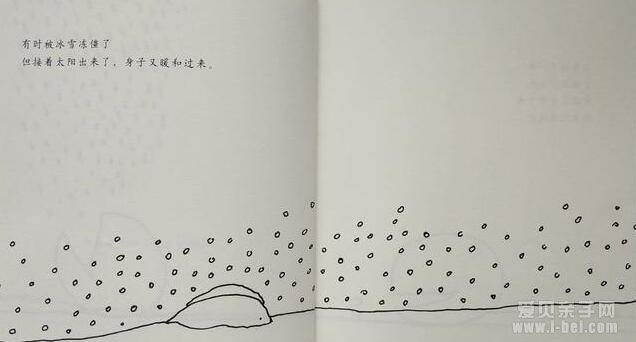 有时被冰雪冻僵了
但接着太阳出来了，身子又暖和过来。
爱贝亲子网
www.i-bei.com